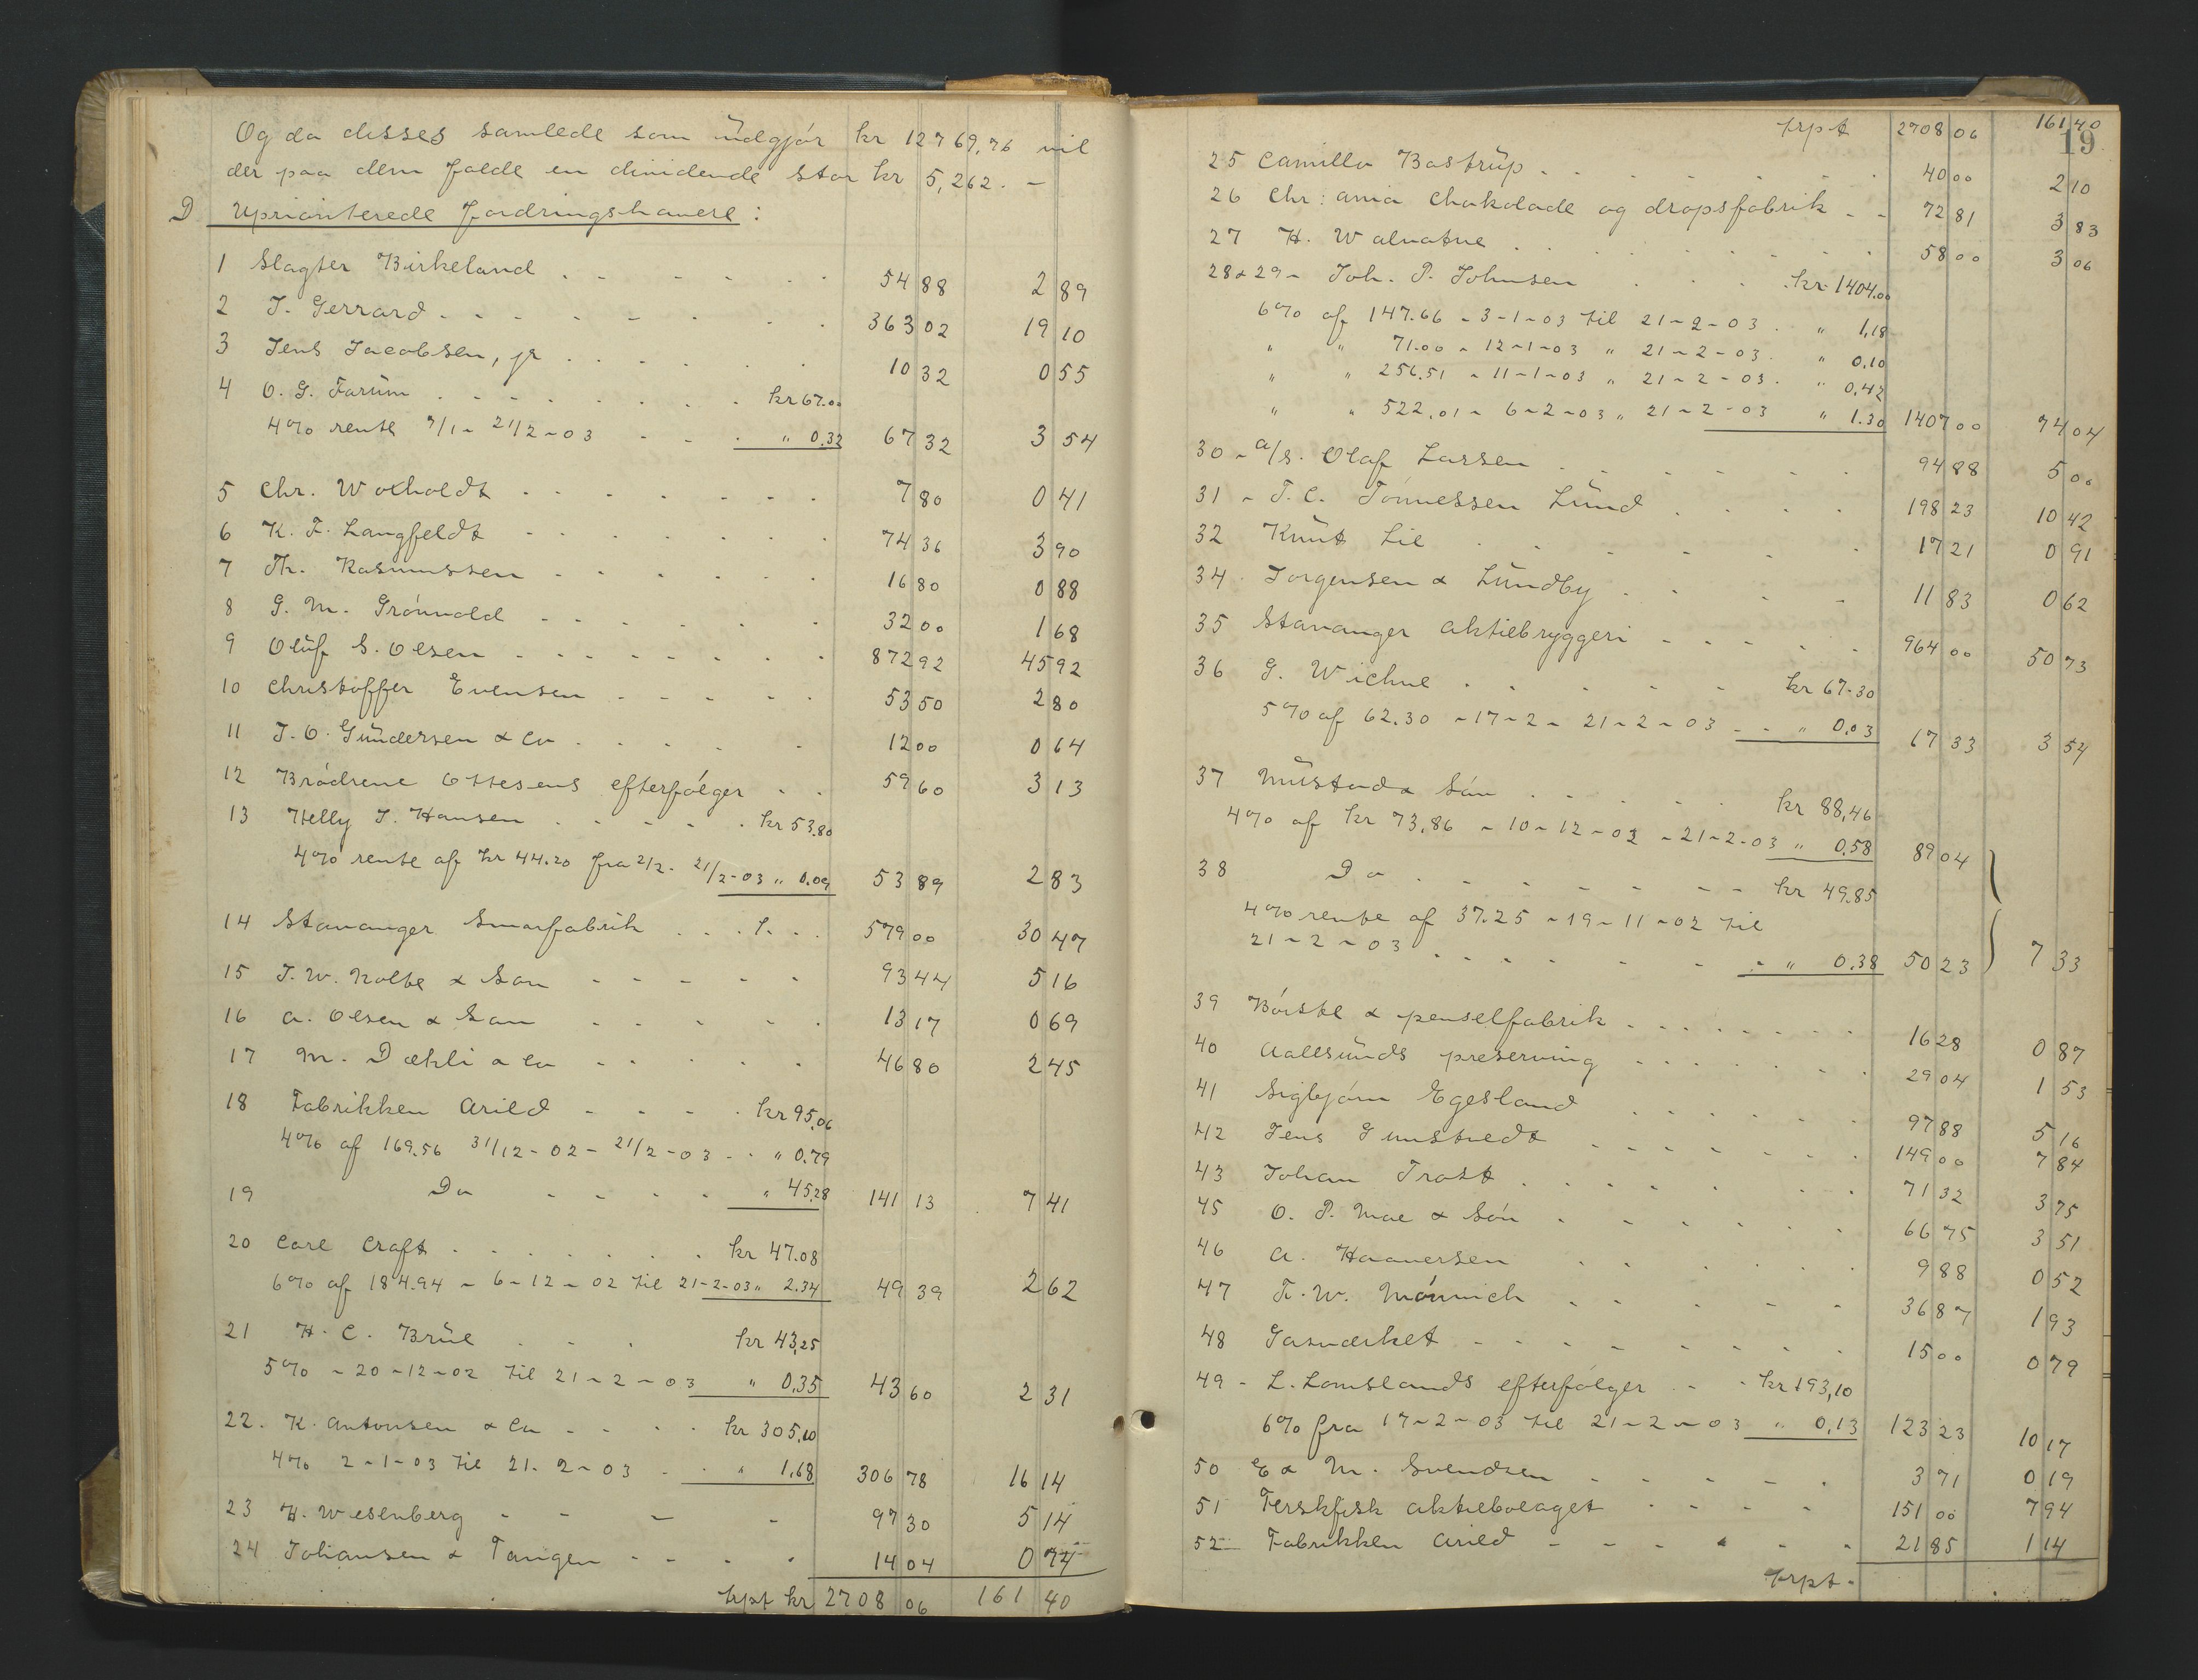 Og da disses samlede sum udgjør kr 12769,76 vil
der paa dem falde en dividende stor kr 5,262. –
D Uprioriterede fordringshavere:
1 Slagter Birkeland . . . . . . 54 88 2 89
2 J. Gerrard . . . . . . . 363 02 19 10
3 Jens Jacobsen, jr . . . . . . 10 32 0 55
4 O. G. Farüm . . . . . . . kr 67.00
4% rente 7/1 - 21/2 - 03 . . . " 0.32 67 32 3 54
5 Chr. Woxholdt . . . . . . . 7 80 0 41
6 K. F. Langfeldt . . . . . . . 74 36 3 90
7 Th. Rasmussen . . . . . . 16 80 0 88
8 G. M. Grønvold . . . . . . 32 00 1 68
9 Olüf S. Olsen . . . . . . . 872 92 45 92
10 Christoffer Evensen . . . . . 53 50 2 80
11 J. O. Gündersen & Co . . . . . 12 00 0 64
12 Brødrene Ottesens efterfølger . . 59 60 3 13
13 Helly J. Hansen . . . . . . kr 53.80
4% rente af kr 44.20 fra 2/2 - 21/2-03 " 0.09 53 89 2 83
14 Stavanger Smørfabrik . . . . . 579 00 30 47
15 J. W. Nolte & Søn - - - - - 93 44 5 16
16 A. Olsen & Søn - - - - . 13 17 0 69
17 M. Dæhli & Co - - . . . 46 80 2 45
18 Fabrikken Arild - - - . kr 95,06
4% af 169.56 31/12 - 02 - 21/2 - 03 - . " 0.79
19 Do - - - . " 45,28 141 13 7 41
20 Carl Craft . . . . . . . kr 47.08
6% af 184.94 - 6-12-02 til 21-2-03 " 2.34 49 39 2 62
21 H. C. Brüe . . . kr 43,25
5% - 20-12-02 til 21-2-03 " 0,35 43 60 2 31
22. K. Antonsen & Co - - . . kr 305,10
4% 2-1-03 til 21-2-03 - . " 1.68 306 78 16 14
23 H. Wesenberg - - - - 97 30 5 14
24 Johansen & Tangen - - . . 14 04 0 74
trpt kr 2708 06 161 40
19
trpt 2708 06 161 40
25 Camilla Bastrüp . . . . . . . 40 00 2 10
26 Chr: ania Chokolade og dropsfabrik - - 72 81 3 83
27 H. Walvatne . . . . . . . 58 00 3 06
28 & 29 - Joh. P. Johnsen . . . . kr 1404.00
6% af 147.66 - 3-1-03 til 21-2-03 . " 1,18
" " 71.00 - 12-1-03 " 21-2-03 . " 0.10
" " 256.51 - 11-1-03 " 21-2-03 . " 0,42
" " 522,01 - 6-2-03 " 21-2-03 " 1.30 1407 00 74 04
30 - A/s. Olaf Larsen . . . . . . 94 88 5 00
31 - T. C. Tønnessen Lünd . . . . 198 23 10 42
32 Knüt Lie . . . . . . 17 21 0 91
34 . Jorgensen & Lündby . . . - 11 83 0 62
35 Stavanger Aktiebryggeri - - - . . 964 00 50 73
36 G. Wichne . . . . . - kr 67-30
5% af 62.30 - 17-2 - 21-2-03 - - " 0.03 67 33 3 54
37 Müstad & Søn . . . . . . kr 88,46
4% af kr 73,86 - 10-12-02 - 21-2-03 " 0.58 89 04
38 Do . - - - - - kr 49.85
4% rente af 37.25 - 19-11-02 til
21-2-03 . . . . - - - " 0.38 50 23 7 33
39 Børste & penselfabrik . . . . . . . 16 28 0 87
40 Aalesünds preserving . . . . . . 29 04 1 53
41 Sigbjørn Egesland . . . . . . 97 88 5 16
42 Jens Gunstvedt - - - - - . . 149 00 7 84
43 Johan Trost . . . . . . . 71 32 3 75
45 O. P. Moe & Søn . . - . . . 66 75 3 51
46 A. Haaversen . . . . . . 9 88 0 52
47 Fr. W. Mønnich . . . . . 36 87 1 93
48 Gasverket - - - . . . . 15 00 0 79
49 - L. Lomslands efterfølger . - - kr 193,10
6% fra 17-2-03 til 21-2-03 " 0,13 123 23 10 17
50 E & M. Svendsen - - - - . 3 71 0 19
51 Ferskfisk aktiebolaget . . . . 151 00 7 94
52 - Fabrikken Arild - - - . . . 21 85 1 14
trpt -